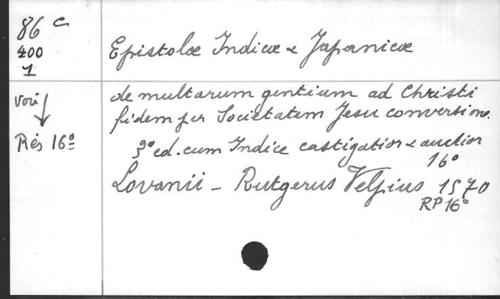 86 c
400
1
Epistolæ Indicæ & Japanicæ
de multarum gentium ad Christi
fidem per Societatem Jesu conversione.
3ª ed. cum Indice castigatior & auctior
16º
Lovanii - Rutgerus Velpius 1570
RP 16º
voir
Rés 16º